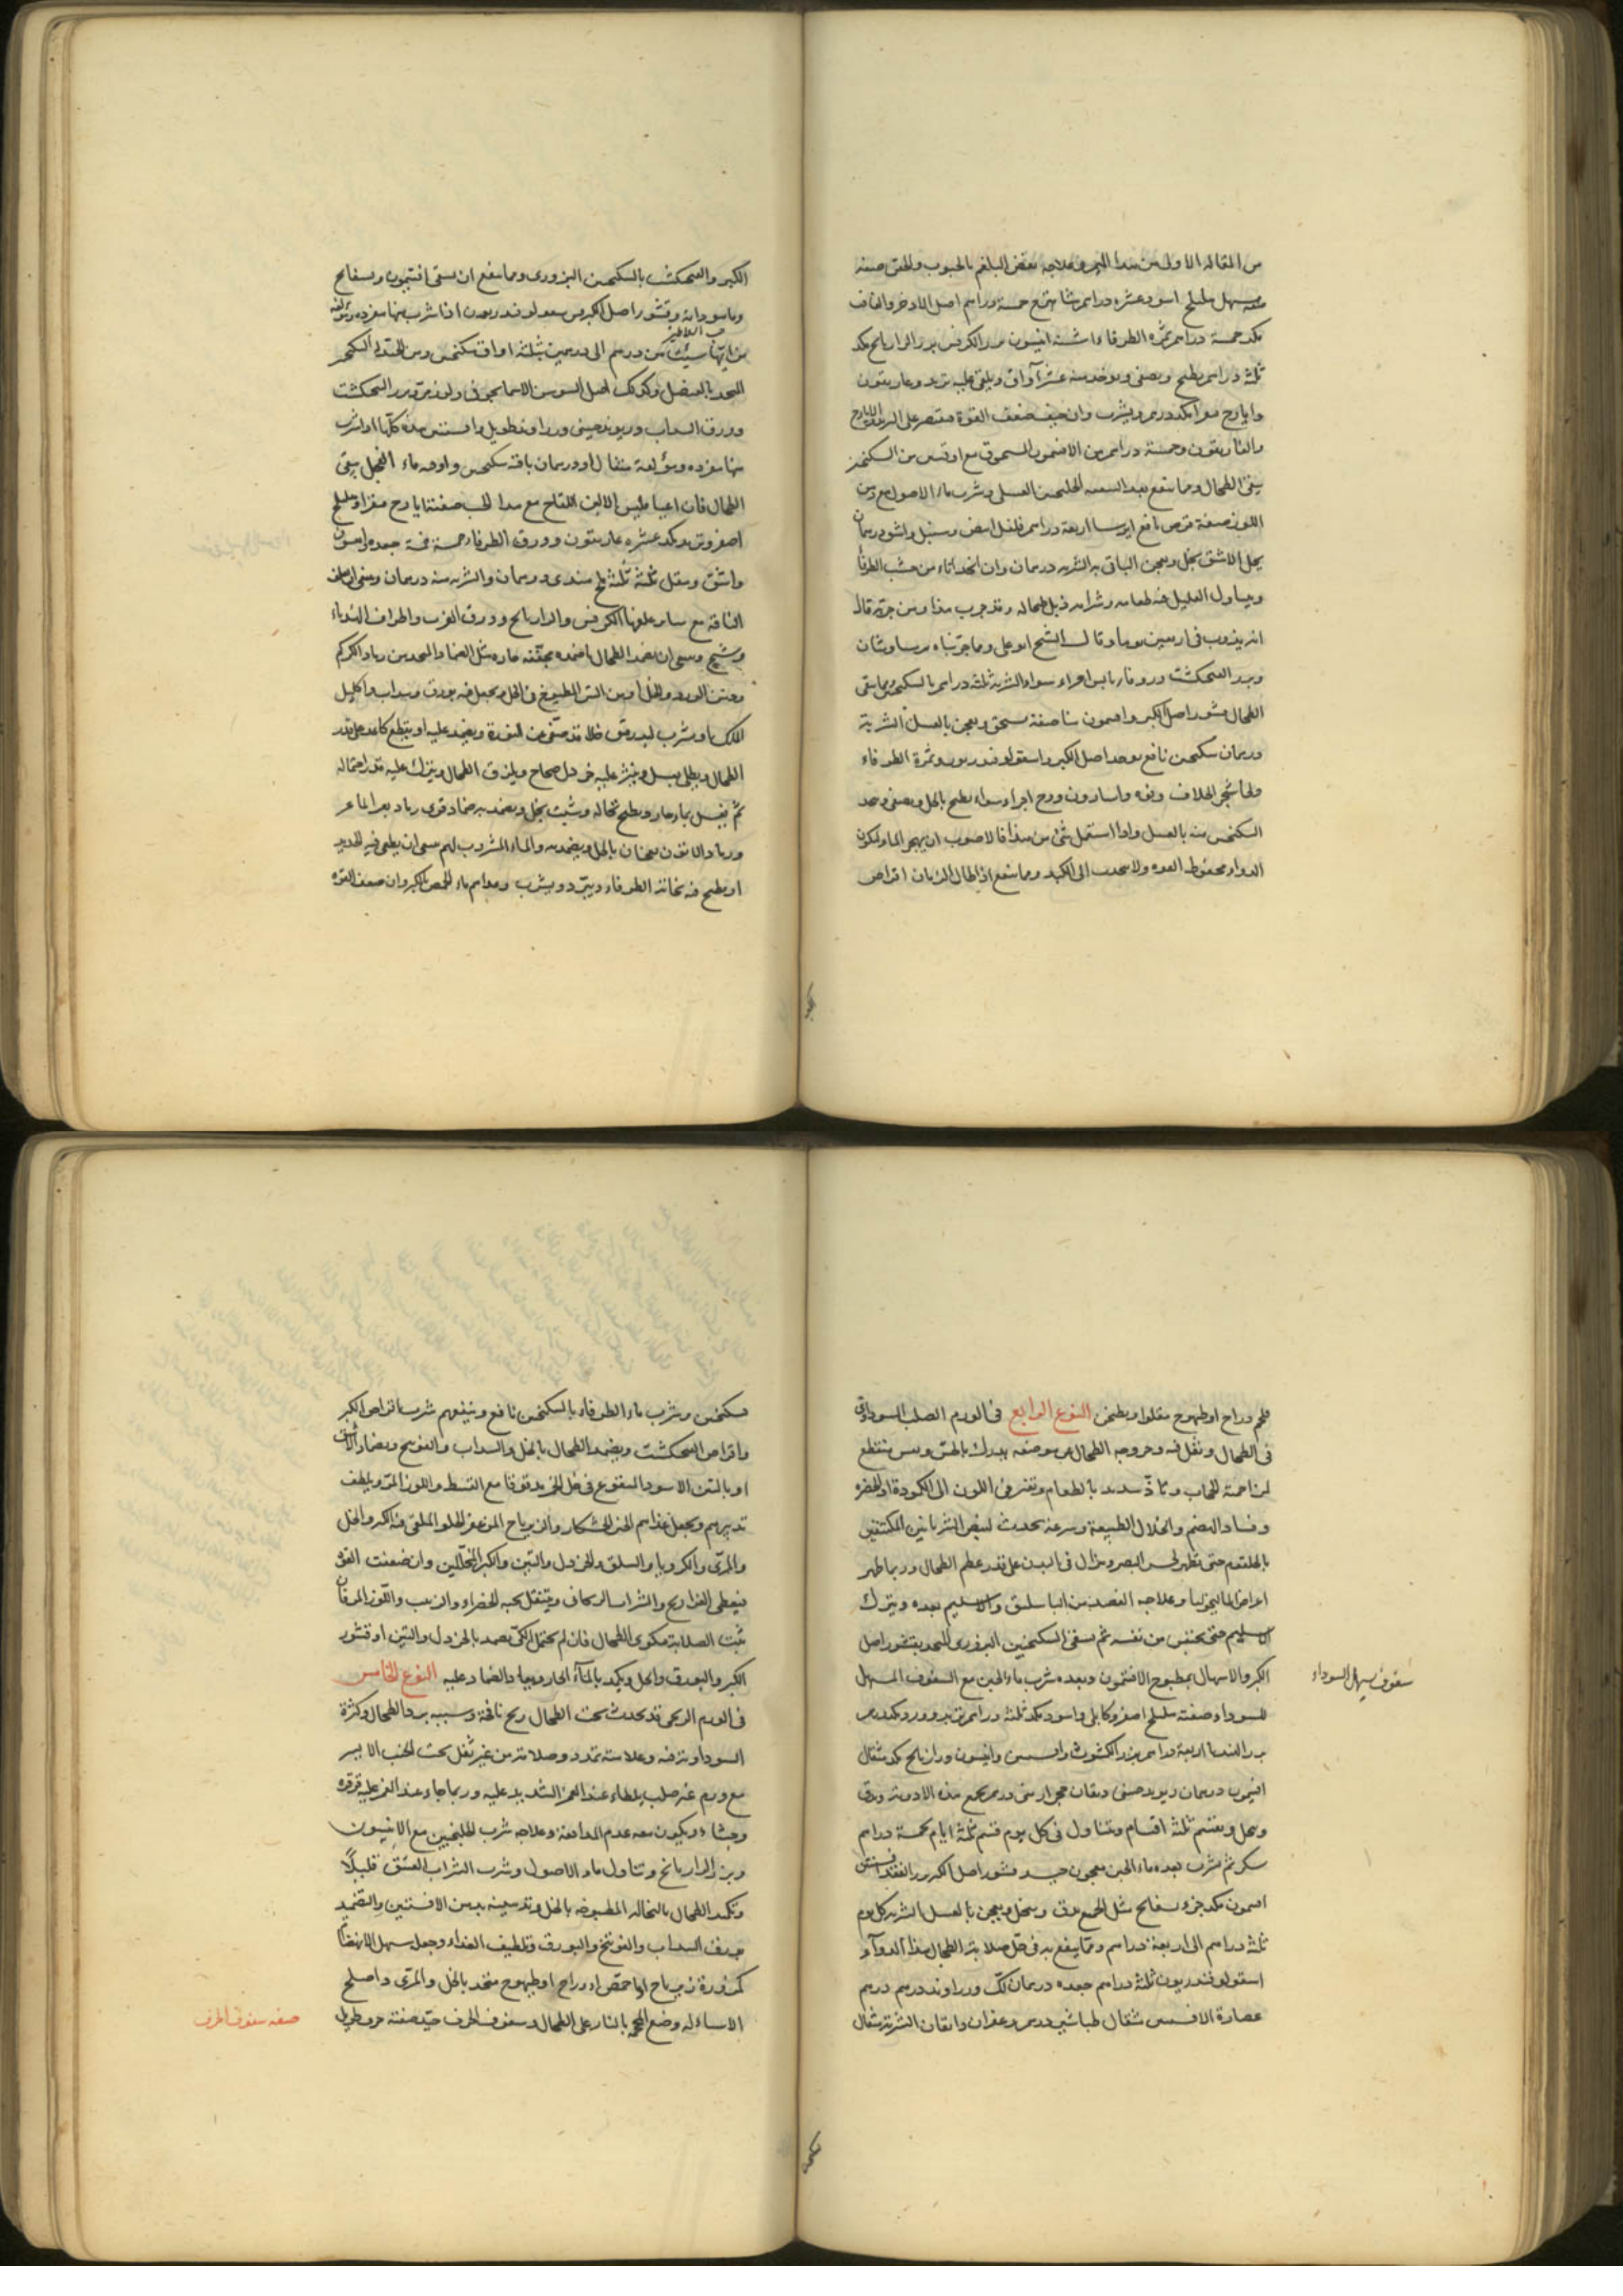 من المقالة الاولى من هذا وعلاجه نفض البلغم بالحبوب والحقن صفته
مسهل هليلج اسود عشرة دراهم شاهترج خمسة دراهم اصل الاذخر والغافث
مكد خمسة دراهم ثمرة الطرفاء انيسون بزر الكرفس بزر الرازيانج مكد
ثلثة دراهم يطبخ ويصفى ويوخذ منه عشر اواق ويلقى عليه تربد وغاريقون
وايارج فيقرا مكد درهم ويشرب وان خيف ضعف القوة فيقتصر على
والغاريقون وخمسة دراهم من الافتيمون المسحوق مع اوقيتين من السكنجبين
ينقى الطحال ومما ينفع بعد التنقية الجلنجبين العسلى وشرب ماء الاصول مع دهن
اللوز صفة قرص نافع ايرسا اربعة دراهم فلفل ابيض وسنبل واشق درهمان
يحل الاشق بخل ويعجن الباقى به الشربة درهمان وان اتخذ اناء من خشب الطرفا
ويناول العليل فيه طعامه وشرابه ذبل طحاله وقد جرب هذا ومن جربه قال
انه يذوب فى اربعين يوما وقال الشيخ ابو على ومما جربناه
وبزر الفنجنكشت اجزاء سواء الشربة ثلثة دراهم بالسكنجبين ومما ينقى
الطحال قشور اصل الكبر وافتيمون مناصفة يسحق ويعجن بالعسل الشربة
درهمان سكنجبين نافع يوخذ اصل الكبر واسقولوقندريون وثمرة الطرفاء
ولحا شجر الخلاف وفوة واسارون ووج اجزاء سواء يطبخ بالخل ويصفى ويتخذ
السكنجبين منه بالعسل واذا استعمل شئ من هذا فالاصوب ان يهجر الماء ليكون
الدواء محفوظ القوة ولا ينجذب الى الكبد ومما ينفع اذا طال الزمان اقراص
الكبر والفنجنكشت بالسكنجبين البزورى ومما ينفع ان يسقى افتيمون وبسفايج
وقشور اصل الكبر من سقولوقندريون اذا شرب منها مفردة ومولفة
من ايها شئت من درهم الى درهمين بثلثة اواق سكنجبين ومن الجيد له السكنجبين
المتخذ بالعنصل وكذلك اصل السوسن الاسمانجونى ولوز مر وبزر الفنجنكشت
وورق السداب وريوند صينى وزراوند طويل وافسنتين هذه كلها اذا شرب
منها مفردة ومؤلفة مثقال او درهمان باوقية سكنجبين واوقية ماء الفجل ينقى
الطحال فان اعيا فليس الا لبن اللقاح مع هذا الحب صفته ايارج فيقرا وهليلج
اصفر وتربد مكد عشرة غاريقون وورق الطرفاء خمسة خمسة جعدة وافتيمون
واشق ومقل ثلثة ثلثة ملح هندى درهمان والشربة منه درهمان وينبغى ان يعلف
الناقة مع ساير علفها الكرفس والرازيانج وورق الغرب واطراف الهندباء
وشيح وينبغى ان يضمد الطحال باضمدة مجففة حارة مثل الضماد المتخذ من رماد الكرم
ودهن الورد والخل او من التين المطبوخ فى الخل ويجعل فيه بورق وسداب واكليل
الملك
الطحال ويطلى بعسل وينثر عليه خردل صحاح ويلزق الطحال ويترك عليه قدر احتماله
ثم يغسل بماء حار ويطبخ نخالة وشبت بخل ويضمد به ضماد قوى رماد بعر الماعز
ورماد الاتون يعجنان بالخل ويضمد به والماء المشروب لهم ينبغى ان يطفى فيه الحديد
او يطبخ فيه نحاتة الطرفاء ويبرد ويشرب وغذاهم ماء الحمص بالكبر وان ضعف القوة
فلحم دراج او طيهوج مقلوا وبطجن النوع الرابع فى الورم الصلب السوداوى
فى الطحال وثقل فيه وخروجه الطحال من موضعه يدرك بالحس ونفس منقطع
لمزاحمة الحجاب وتاذ شديد بالطعام وتغير فى اللون الى الكمودة او الخضرة
وفساد الهضم وانحلال الطبيعة وسرعة يحدث لنبض الشريانين المكتنفين
بالحلقوم حتى يظهر لحس البصر وهزال فى البدن على قدر عظم الطحال وربما ظهر
اعراض الماليخوليا وعلاجه الفصد من الباسليق والاسيلم بعده ويترك
الاسيلم حتى يحتبس من نفسه ثم يسقى السكنجبين البزورى المتخذ بقشور اصل
الكبر والاسهال بمطبوخ الافتيمون وبعده شرب ماء الجبن مع السفوف المسهل
للسوداء صفته هليلج اصفر وكابلى واسود مكد ثلثة دراهم تربد وورد مكد درهم
بزر الهندبا اربعة دراهم بزر الكشوث وافسنتين وانيسون ورازيانج مكد مثقال
افتيمون درهمان ريوند صينى دانقان حجر ارمنى درهم يجمع هذه الادوية ويدق
وينخل ويقسم ثلثة اقسام ويتناول فى كل يوم قسم ثلثة ايام بخمسة دراهم
سكر ثم يشرب بعده ماء الجبن معجون جيد قشور اصل الكبر بزر الفقد افسنتين
افتيمون مكد جزء بسفايج مثل الجميع يدق وينخل ويعجن بالعسل الشربة كل يوم
ثلثة دراهم الى اربعة دراهم ومما ينفع به فى حل صلابة الطحال هذا الدواء
اسقولوقندريون ثلثة دراهم جعدة درهمان لك وزراوند درهم درهم
عصارة الافسنتين مثقال طباشير درهم وزعفران دانقان الشربة مثقال
سفوف يسهل السوداء
بسكنجبين وشرب ماء الطرفاء بالسكنجبين نافع وينفعهم شرب اقراص الكبر
واقراص الفنجنكشت ويضمد الطحال بالخل والسداب والفوتنج وبضماد الاشق
او بالتين الاسود المنقوع فى خل الخمر مدقوقا مع القسط واللوز المر ويلطف
تدبيرهم ويجعل غذاهم الخبز الخشكار والزيرباج المزعفر الحلو الملقى فيه الكبر والخل
والمرى والكرويا والسلق والخردل والتين والكبر المخللين وان ضعفت القوة
فيعطى الفراريج والشراب الريحانى ويتنقل بحبه الخضراء والزبيب واللوز المر فان
ثبت الصلابة فيكوى الطحال فان لم يحتمل الكى يضمد بالخردل والتين او قشور
الكبر والبورق والخل ويكمد بالماء الحار ويعاد الضماد عليه النوع الخامس
فى الورم الريحى قد يحدث تحت الطحال ريح نافخة وسببه برد الطحال وكثرة
السوداوية فيه وعلامته تمدد وصلابة من غير ثقل تحت الجنب الايسر
مع ورم غير صلب يلطاء عند الغمز الشديد عليه وربما جاء عند الغمز عليه قرقرة
وجشاء ويكون معه عدم المدافعة وعلاجه شرب الجلنجبين مع الانيسون
وبزر الرازيانج وتناول ماء الاصول وشرب الشراب العتيق قليلا
وتكميد الطحال بالنخالة المطبوخة بالخل وتدهينه بدهن الافسنتين والتضميد
بورق السداب والفوتنج والبورق وتلطيف الغذاء وجعله سهل الانهضام
كمزورة زيرباج او ماء حمص او دراج او طيهوج متخذ بالخل والمرى واصلح
الاشياء له وضع المحجمة بالنار على الطحال وسفوف الحرف جيد صفته حرف
صفة سفوف الحرف